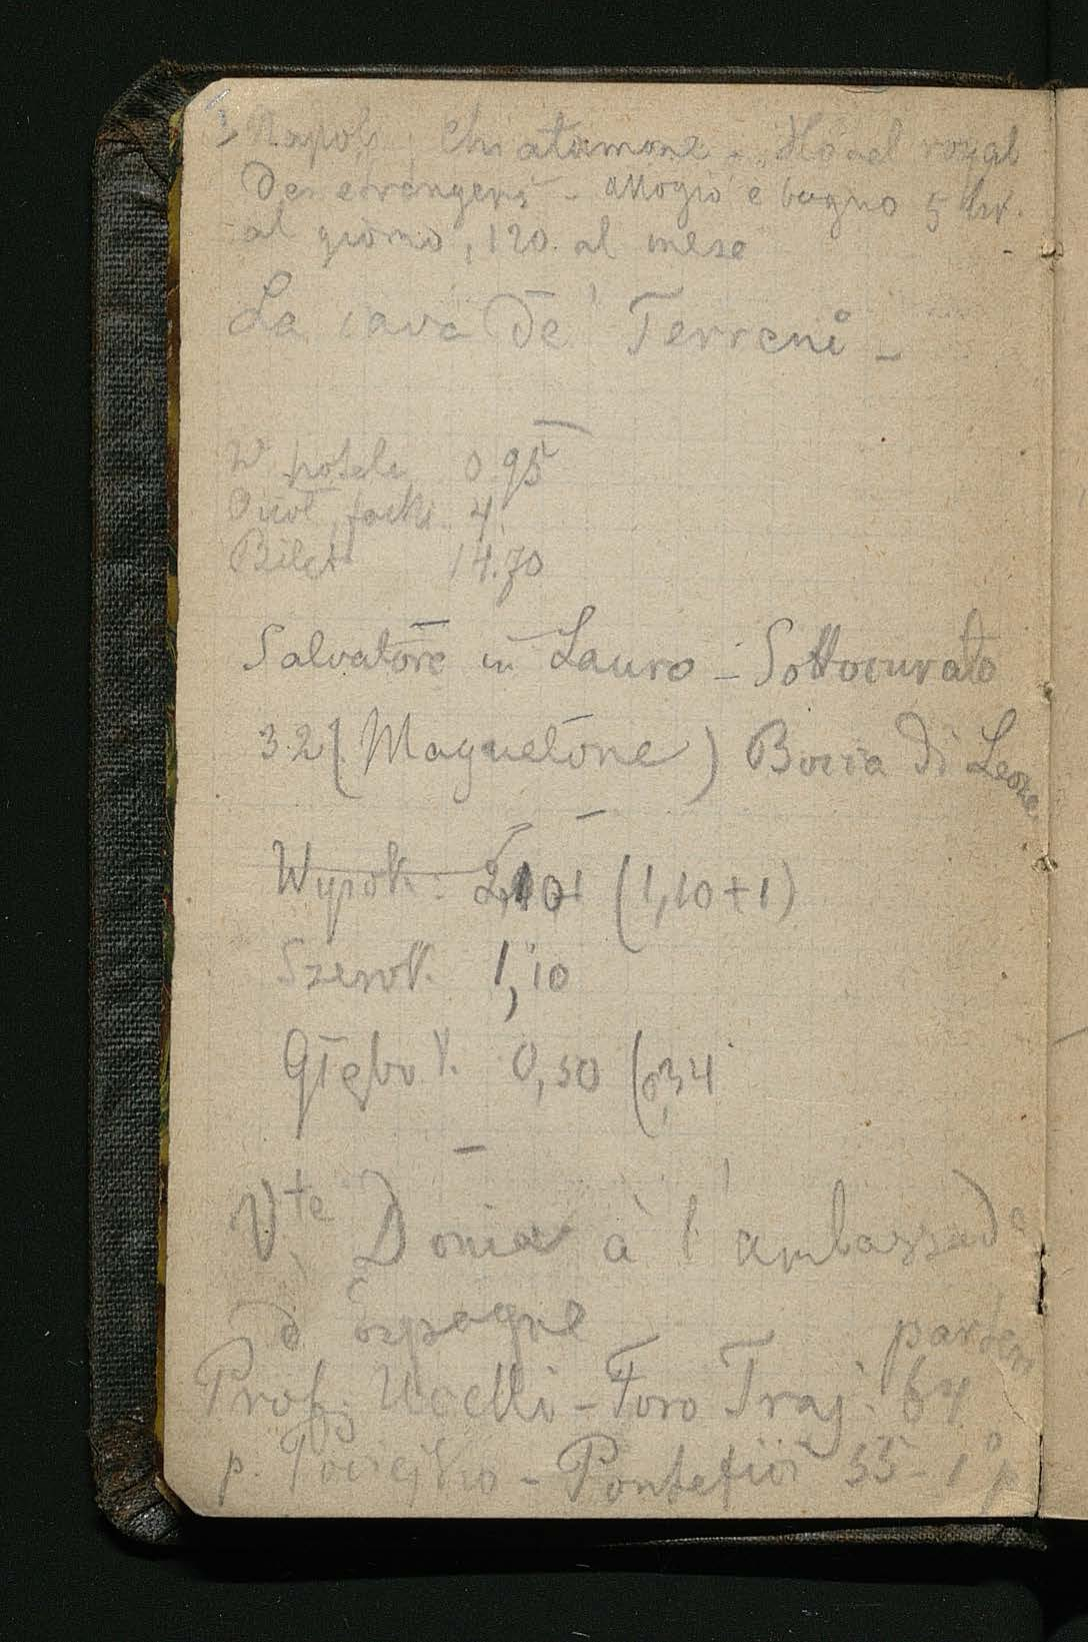 Napoli, Chiatamone - Hotel royal
Des etrangers - allogio e bagno 5 lir.
al giorno, 120. al mese
La cava de' Terreni -
W hotelu 0.95
4.
Bilet 14.70
Salvatore in Lauro - Sottocurato
32 (Maguelone) Bocca di Leone
Wysok: 2,10 (1,10+1)
Szerok. 1,10
Głębok. 0,50 (0,34
Vte Donia à l'ambassade
d'Espagne
parten
Prof. Ucelli - Foro Traj. 64
p. - Pontefici 55 - 1° p